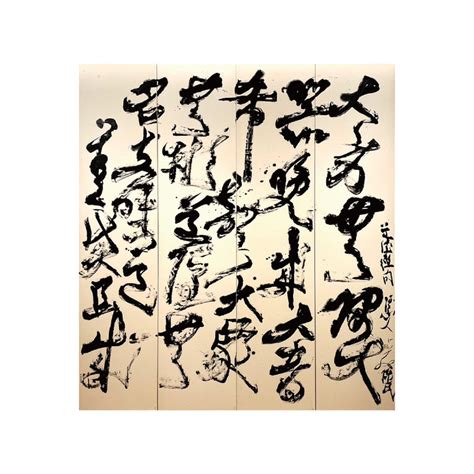 大方無隅大
器晚成大音
希聲大象
無形道隱無
名夫唯道
善貸且成